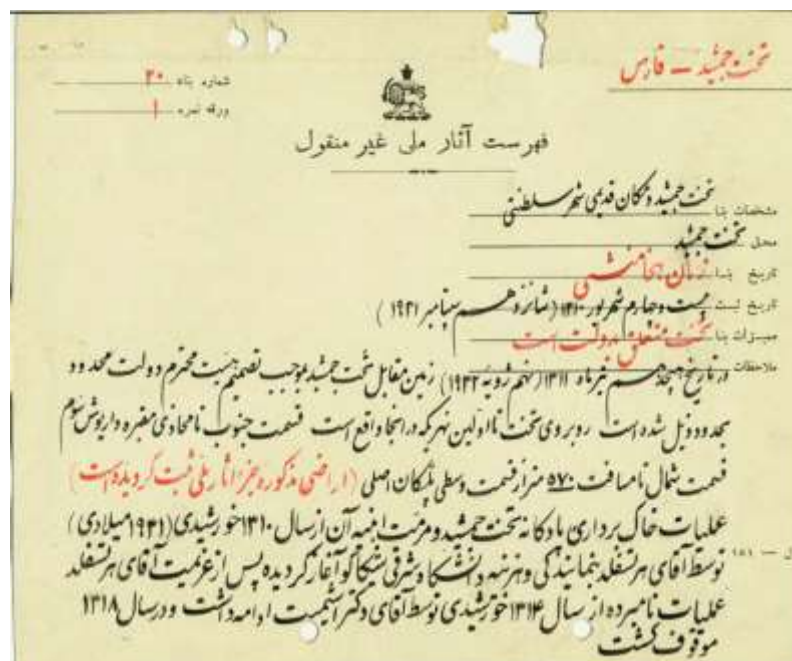 تخت جمشید – فارس
شماره بناء ۲۰
ورقه نمره ۱
فهرست آثار ملی غیر منقول
مشخصات بنا تخت جمشید و مکان قدیمی شهر سلطنتی
محل تخت جمشید
تاریخ بنا زمان هخامنشی
تاریخ ثبت بیست و چهارم شهریور ۱۳۱۰ (شانزدهم سپتامبر ۱۹۳۱)
ممیزات بنا تخت متعلق بدولت است
ملاحظات در تاریخ هیجدهم تیرماه ۱۳۱۱ (نهم ژویه ۱۹۳۲) زمین مقابل تخت جمشید بموجب تصمیم هیئت محترم دولت محدود
بحدود ذیل شده است روبروی تخت تا اولین نهر که در آنجا واقع است قسمت جنوب تا محاذی مقبره داریوش سوم
قسمت شمال تا مسافت ۵۷۰ متر از قسمت وسطی پلکان اصلی (اراضی مذکوره جزء آثار ملی ثبت گردیده است)
عملیات خاک برداری یادگانه تخت جمشید و مرمت ابنیه آن از سال ۱۳۱۰ خورشیدی (۱۹۳۱ میلادی)
توسط آقای هرتسفلد بنمایندگی و هزینه دانشگاه شرقی شیکاگو آغاز گردیده پس از عزیمت آقای هرتسفلد
عملیات نامبرده از سال ۱۳۱۴ خورشیدی توسط آقای دکتر اشمیت ادامه داشت و در سال ۱۳۱۸
موقوف گشت
ل — ۱۵۱